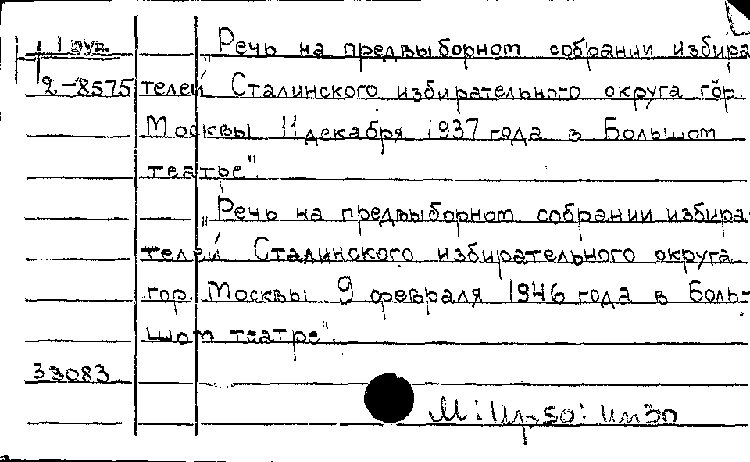 1 груз. „Речь на предвыборном собрании избира
2-8575 телей Сталинского избирательного округа гор.
Москвы 11 декабря 1937 года в Большом
театре".
„Речь на предвыборном собрании избира-
телей Сталинского избирательного округа
гор. Москвы 9 февраля 1946 года в Боль-
шом театре".
33083